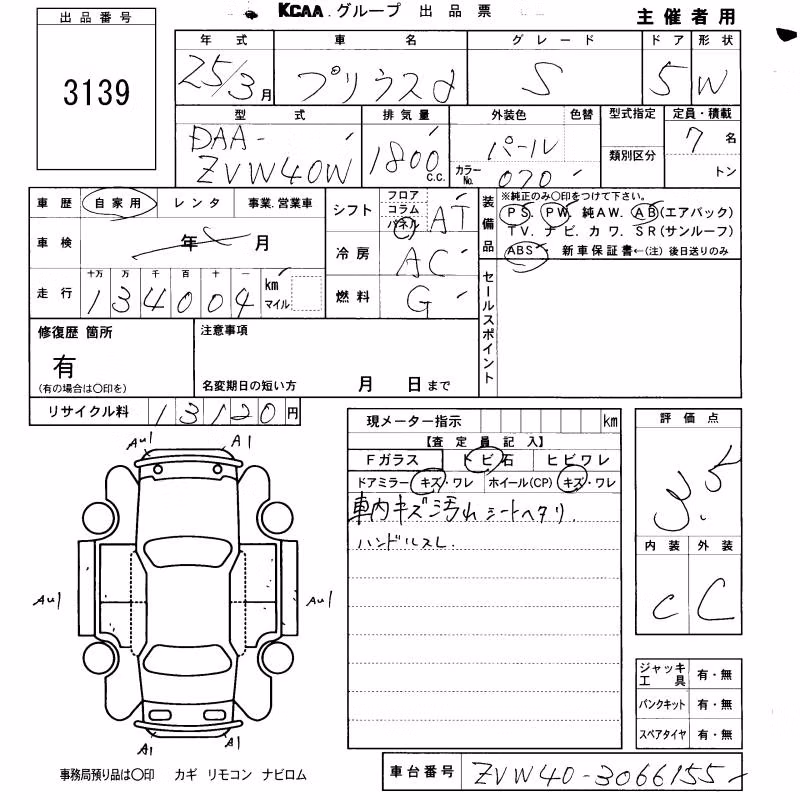 KCAA グループ 出品票
主催者用
出品番号
3139
年式 車名 グレード ドア 形状
25/3月 プリウスα S 5 W
型式 排気量 外装色 色替 型式指定 定員・積載
DAA- ZVW40W 1800 c.c. パール カラーNo. 070 類別区分 7名 トン
車歴 自家用 レンタ 事業.営業車
車検 年 月
走行 十万 万 千 百 十 一 km マイル
134004
シフト フロア コラム パネル AT
冷房 AC
燃料 G
装備品 ※純正のみ〇印をつけて下さい。
PS. PW. 純AW. AB(エアバック)
TV. ナビ. カワ. SR(サンルーフ)
ABS 新車保証書←(注) 後日送りのみ
セールスポイント
修復歴 箇所
有
(有の場合は〇印を)
注意事項
名変期日の短い方 月 日まで
リサイクル料 13120円
現メーター指示 km
【査定員記入】
Fガラス トビ石 ヒビワレ
ドアミラー キズ・ワレ ホイール(CP) キズ・ワレ
車内キズ汚れ シートヘタリ.
ハンドルスレ.
評価点
3.5
内装 外装
C C
AU1 A1
AU1 AU1
A1 A1
ジャッキ工具 有・無
パンクキット 有・無
スペアタイヤ 有・無
事務局預り品は〇印 カギ リモコン ナビロム
車台番号 ZVW40-3066155